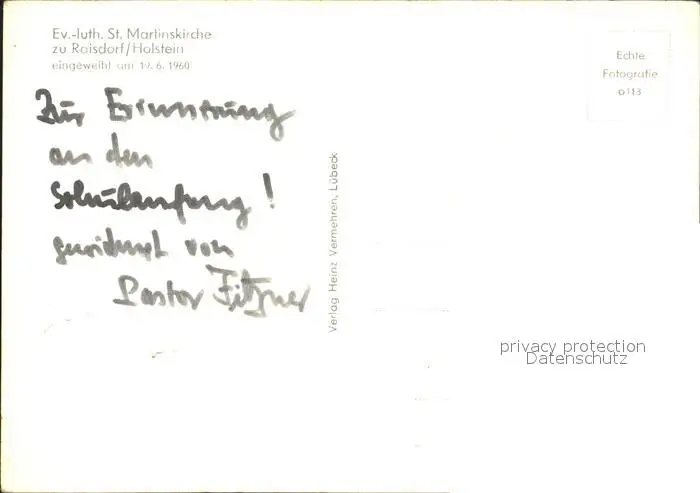 Ev.-luth. St. Martinskirche
zu Raisdorf/Holstein
eingeweiht am 12. 6. 1960
Zur Erinnerung
an den
Schulanfang!
gewidmet von
Pastor Fitzner
Verlag Heinz Vermehren, Lübeck
Echte
Fotografie
o113
privacy protection
Datenschutz